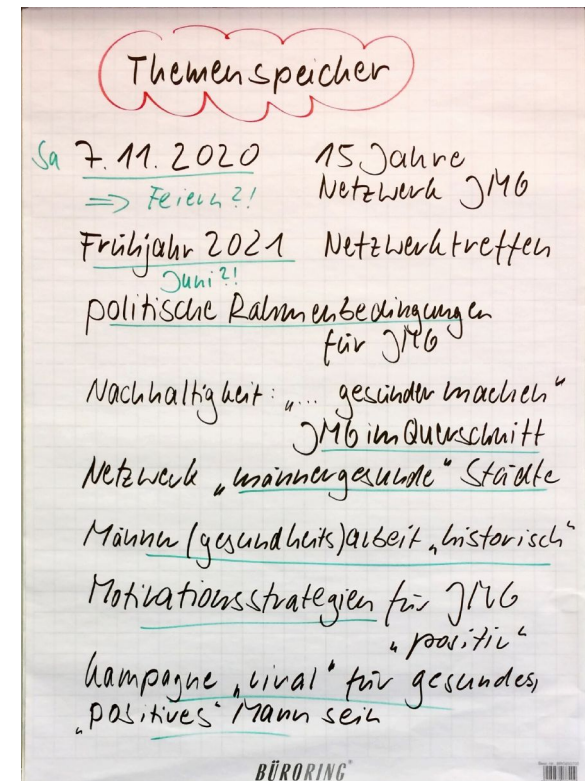 Themenspeicher
Sa 7.11.2020 15 Jahre
=> Feiern?! Netzwerk JMG
Frühjahr 2021 Netzwerktreffen
Juni?!
politische Rahmenbedingungen
für JMG
Nachhaltigkeit: „... gesünder machen“
JMG im Querschnitt
Netzwerk „männergesunde“ Städte
Männer(gesundheits)arbeit „historisch“
Motivationsstrategien für JMG
„positiv“
Kampagne „viral“ für gesundes,
„positives“ Mann sein
BÜRORING